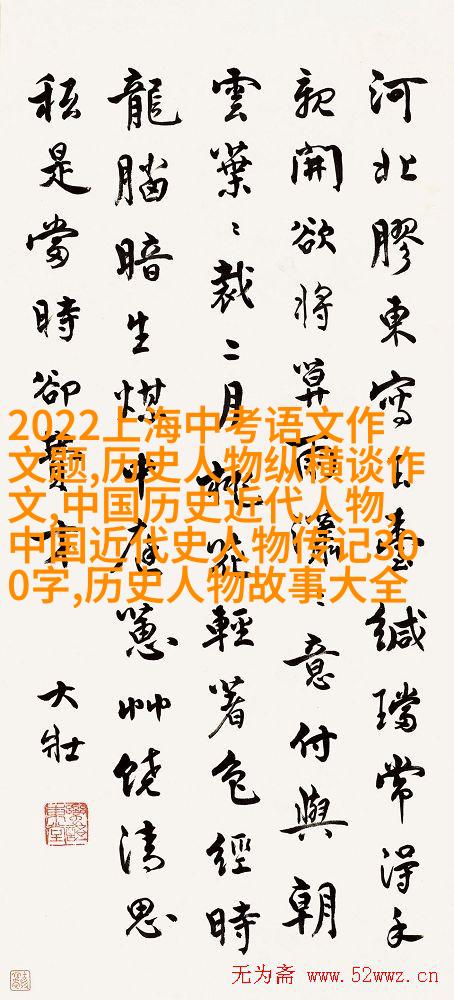 河北膠東寫玉臺緘璫常得手
親開欲將算雨瀟ゝ意付與朝
雲葉ゝ裁二月桃花輕著色經時
龍腦暗生煤中有蕙艸饒清思
秖是當時卻費才
大壯
2022上海中考语文作
文题,历史人物纵横谈作
文,中国历史近代人物,
中国近代史人物传记30
0字,历史人物故事大全
无为斋 www.52wwz.cn